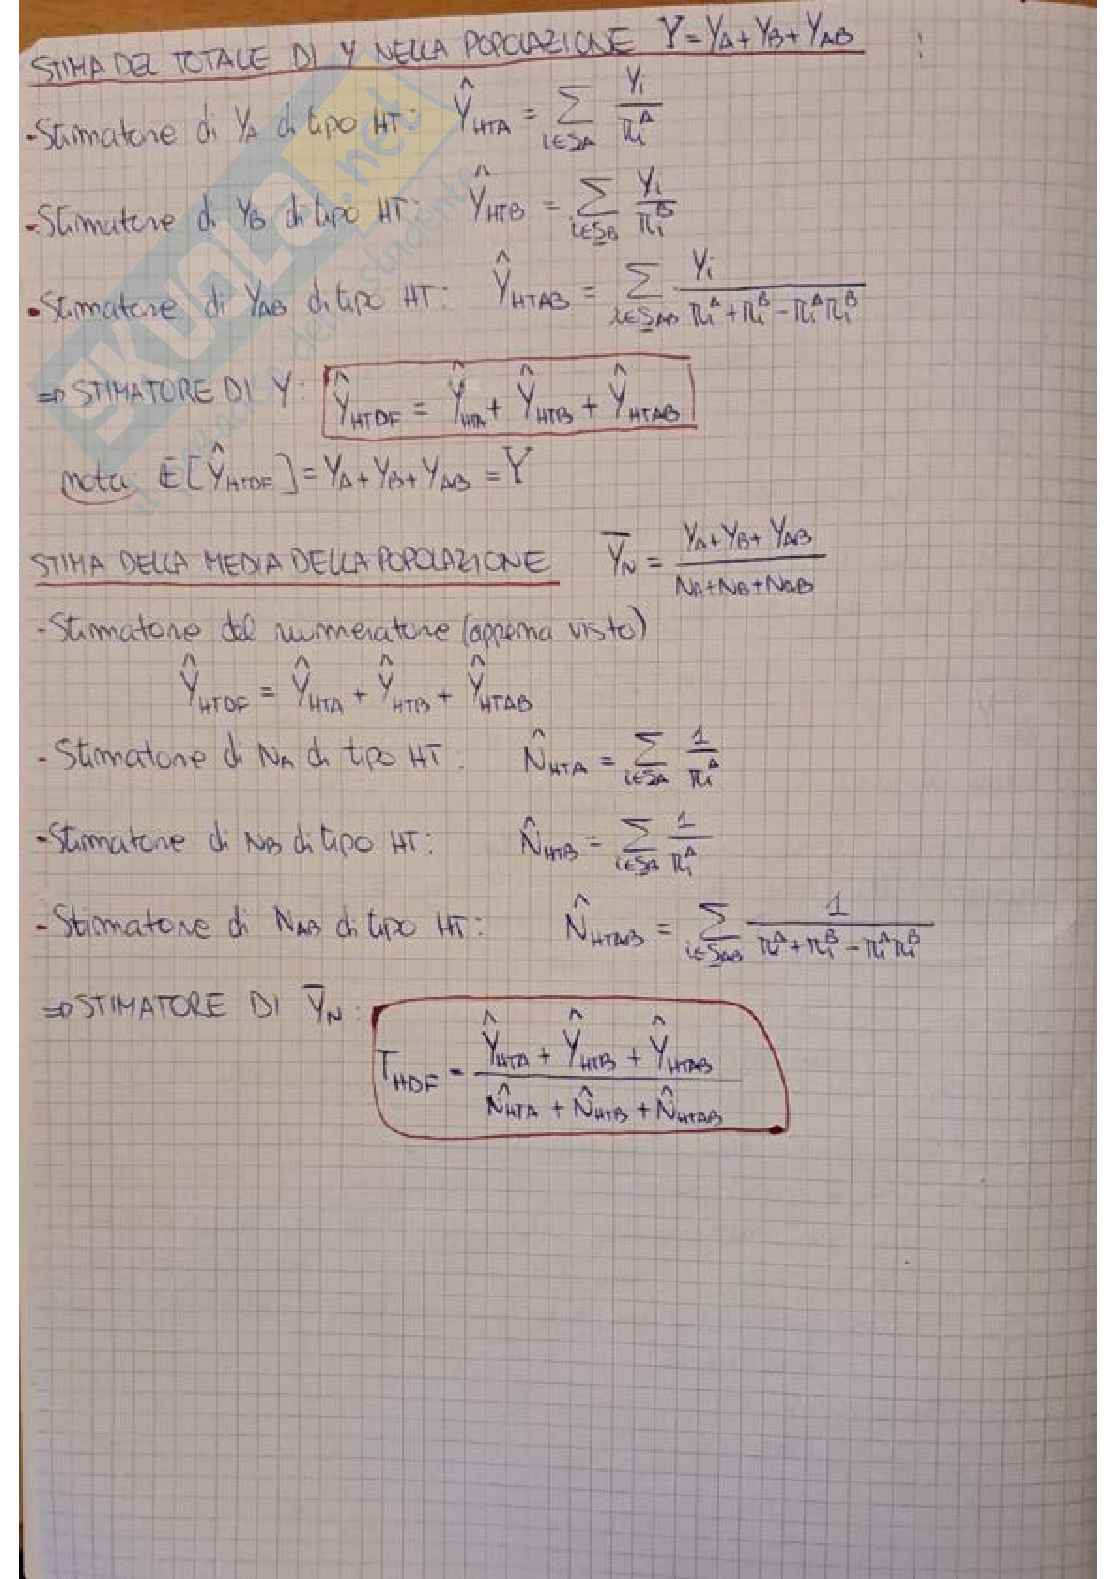 STIMA DEL TOTALE DI Y NELLA POPOLAZIONE Y = Y_A + Y_B + Y_AB
- Stimatore di Y_A di tipo HT: Ŷ_HTA = Σ_{i∈S_A} y_i / π_i^A
- Stimatore di Y_B di tipo HT: Ŷ_HTB = Σ_{i∈S_B} y_i / π_i^B
• Stimatore di Y_AB di tipo HT: Ŷ_HTAB = Σ_{i∈S_AB} y_i / (π_i^A + π_i^B - π_i^A π_i^B)
⇒ STIMATORE DI Y: Ŷ_HTDF = Ŷ_HTA + Ŷ_HTB + Ŷ_HTAB
nota: E[Ŷ_HTDF] = Y_A + Y_B + Y_AB = Y
STIMA DELLA MEDIA DELLA POPOLAZIONE Ȳ_N = (Y_A + Y_B + Y_AB) / (N_A + N_B + N_AB)
- Stimatore del numeratore (appena visto)
Ŷ_HTDF = Ŷ_HTA + Ŷ_HTB + Ŷ_HTAB
- Stimatore di N_A di tipo HT: N̂_HTA = Σ_{i∈S_A} 1 / π_i^A
- Stimatore di N_B di tipo HT: N̂_HTB = Σ_{i∈S_B} 1 / π_i^A
- Stimatore di N_AB di tipo HT: N̂_HTAB = Σ_{i∈S_AB} 1 / (π_i^A + π_i^B - π_i^A π_i^B)
⇒ STIMATORE DI Ȳ_N:
T_HDF = (Ŷ_HTA + Ŷ_HTB + Ŷ_HTAB) / (N̂_HTA + N̂_HTB + N̂_HTAB)
SKUOLA.net